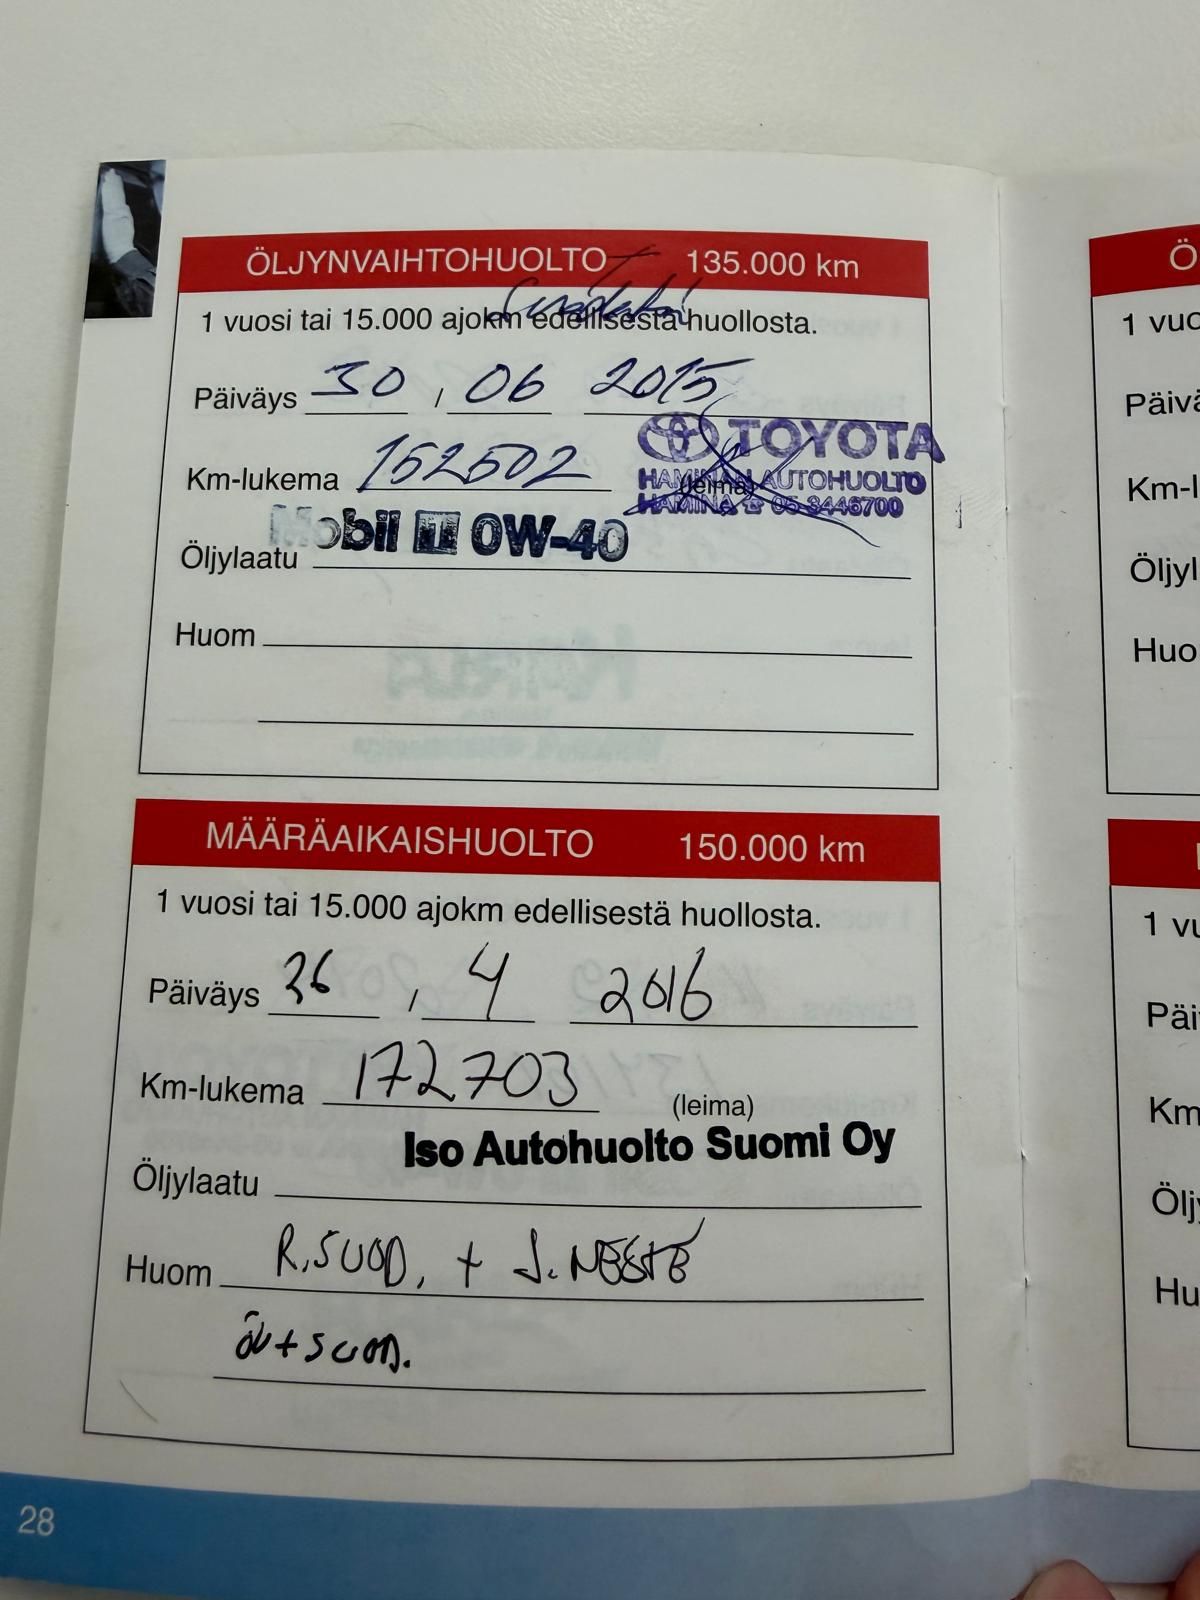 ÖLJYNVAIHTOHUOLTO 135.000 km
1 vuosi tai 15.000 ajokm edellisestä huollosta.
Päiväys 30 / 06 2015
TOYOTA
Km-lukema 152502
HAMINAN AUTOHUOLTO
(leima)
HAMINA ☎ 05-3446700
Mobil 1 0W-40
Öljylaatu
Huom
MÄÄRÄAIKAISHUOLTO 150.000 km
1 vuosi tai 15.000 ajokm edellisestä huollosta.
Päiväys 26 / 4 2016
Km-lukema 172703 (leima)
Iso Autohuolto Suomi Oy
Öljylaatu
Huom R.SUOD. + J.NESTE
öv+suod.
28
Ö
1 vuo
Päivä
Km-l
Öljyl
Huo
1 vu
Päi
Km
Öljy
Hu